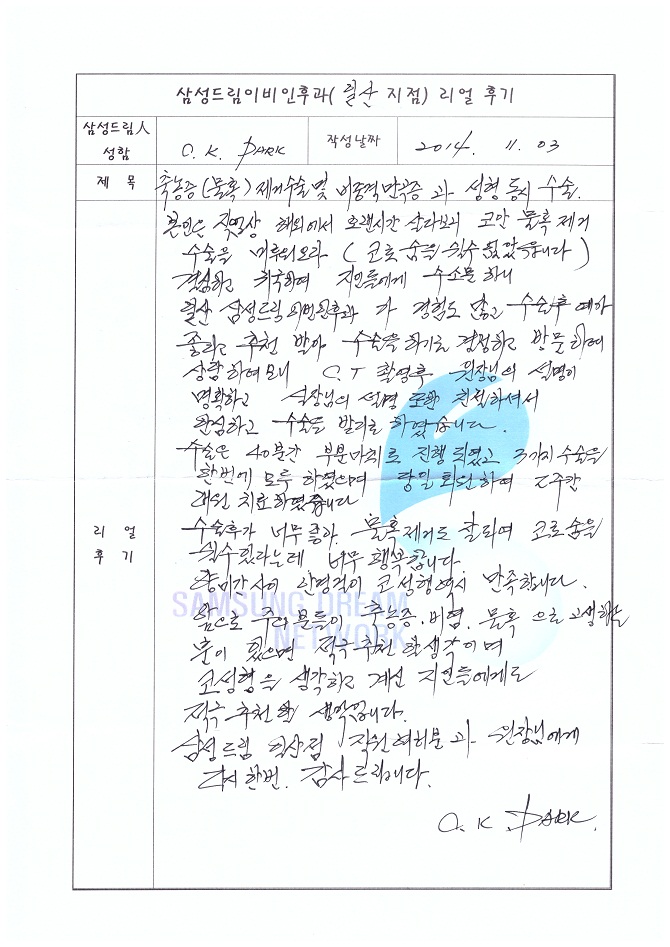 삼성드림이비인후과( 일산 지점) 리얼 후기
삼성드림人 성함
O. K. PARK
작성날짜
2014. 11. 03
제 목
축농증(물혹) 제거수술 및 비중격만곡증 과 성형 동시 수술.
리 얼 후 기
본인은 직업상 해외에서 오랜시간 살다보니 코안 물혹 제거
수술을 미루워오다 ( 코로 숨을 쉴수 없었습니다 )
결심하고 귀국하여 지인들에게 수소문 하니
일산 삼성드림 이비인후과 가 경험도 많고 수술후 예가
좋다고 추천 받아 수술을 하기로 결정하고 방문 하여
상담 하여보니 C.T 촬영후 원장님의 설명이
명확하고 실장님의 설명 또한 친절하셔서
안심하고 수술을 하였습니다.
수술은 40분간 부분마취로 진행 되었고 3가지 수술을
한번에 모두 하였으며 당일 퇴원하여 2주간
내원 치료하였습니다
수술후가 너무 좋아. 물혹제거도 잘되여 코로 숨을
쉴수 있다는데 너무 행복합니다.
코성형역시 만족합니다.
앞으로 주위 분들이 축농증. 비염. 물혹 으로 고생하는
분이 있으면 적극 추천 할생각이며
코성형을 생각하고 계신 지인들에게도
적극 추천 할 생각입니다.
삼성드림 일산점 직원여러분 과 원장님에게
다시 한번. 감사 드립니다.
O. K. PARK.
SAMSUNG DREAM
NETWORK